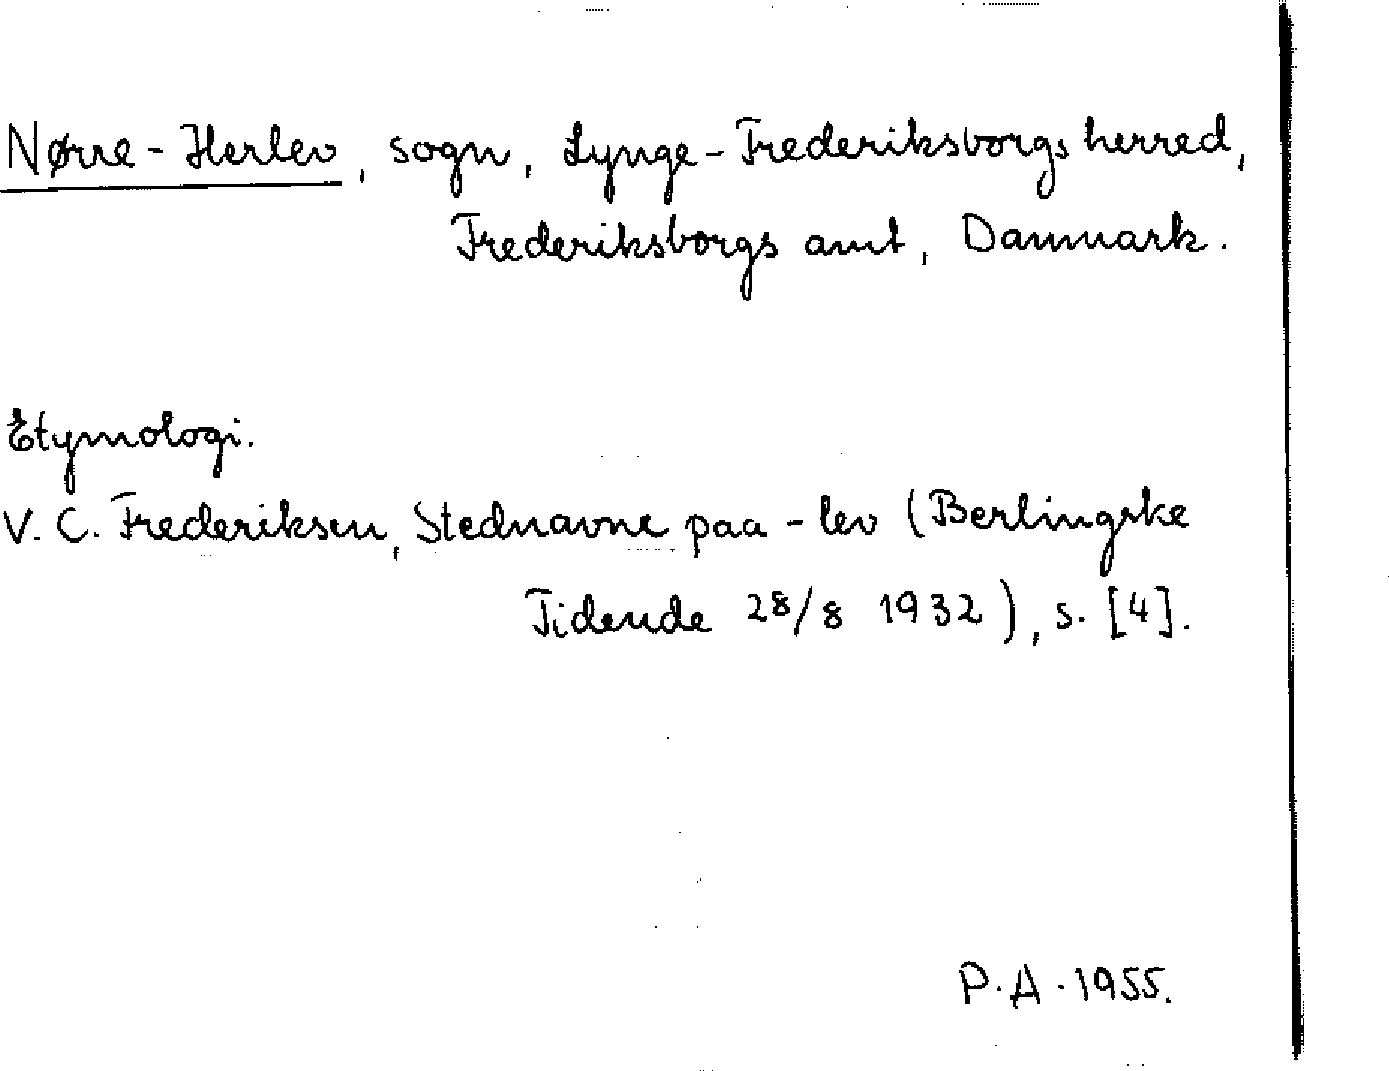 Nørre-Herlev, sogn, Lynge-Frederiksborgs herred,
Frederiksborgs amt, Danmark.
Etymologi.
V. C. Frederiksen, Stednavne paa -lev (Berlingske
Tidende 28/8 1932), s. [4].
P.A. 1955.